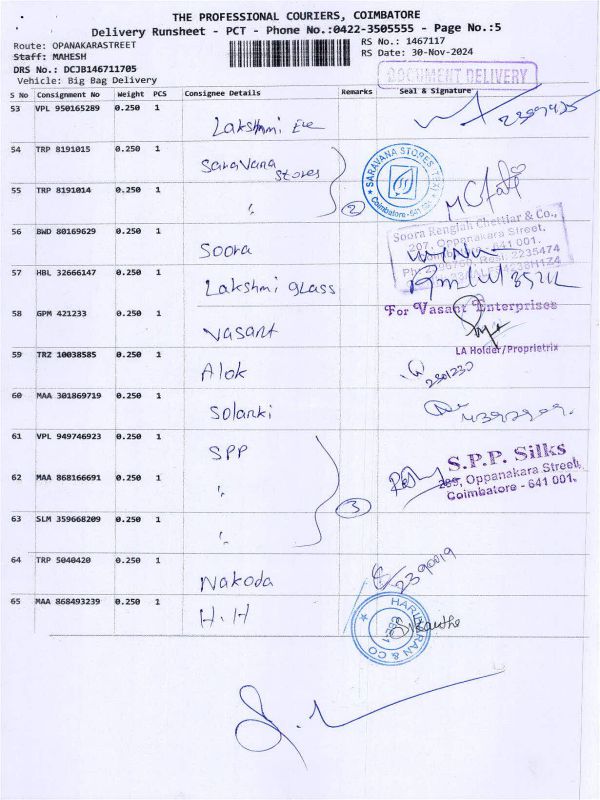 THE PROFESSIONAL COURIERS, COIMBATORE
Delivery Runsheet - PCT - Phone No.:0422-3505555 - Page No.:5
Route: OPANAKARASTREET
RS No.: 1467117
Staff: MAHESH
RS Date: 30-Nov-2024
DRS No.: DCJB146711705
Vehicle: Big Bag Delivery
DOCUMENT DELIVERY
S No Consignment No Weight PCS Consignee Details Remarks Seal & Signature
53 VPL 950165289 0.250 1
Lakshmi
54 TRP 8191015 0.250 1
Saravana
Stores
SARAVANA STORES
Coimbatore-641 001.
55 TRP 8191014 0.250 1
"
2
56 BWD 80169629 0.250 1
Soora
Soora Rengiah Chettiar & Co.,
207, Oppanakara Street,
Coimbatore - 641 001.
2235474
57 HBL 32666147 0.250 1
Lakshmi Glass
58 GPM 421233 0.250 1
Vasant
For Vasant Enterprises
LA Holder/Proprietrix
59 TRZ 10038585 0.250 1
Alok
2301230
60 MAA 301869719 0.250 1
Solanki
61 VPL 949746923 0.250 1
SPP
S.P.P. Silks
289, Oppanakara Street,
Coimbatore - 641 001.
62 MAA 868166691 0.250 1
"
3
63 SLM 359668209 0.250 1
"
64 TRP 5040420 0.250 1
Nakoda
2390019
65 MAA 868493239 0.250 1
H.H
HARIHARAN & CO
CBE-1